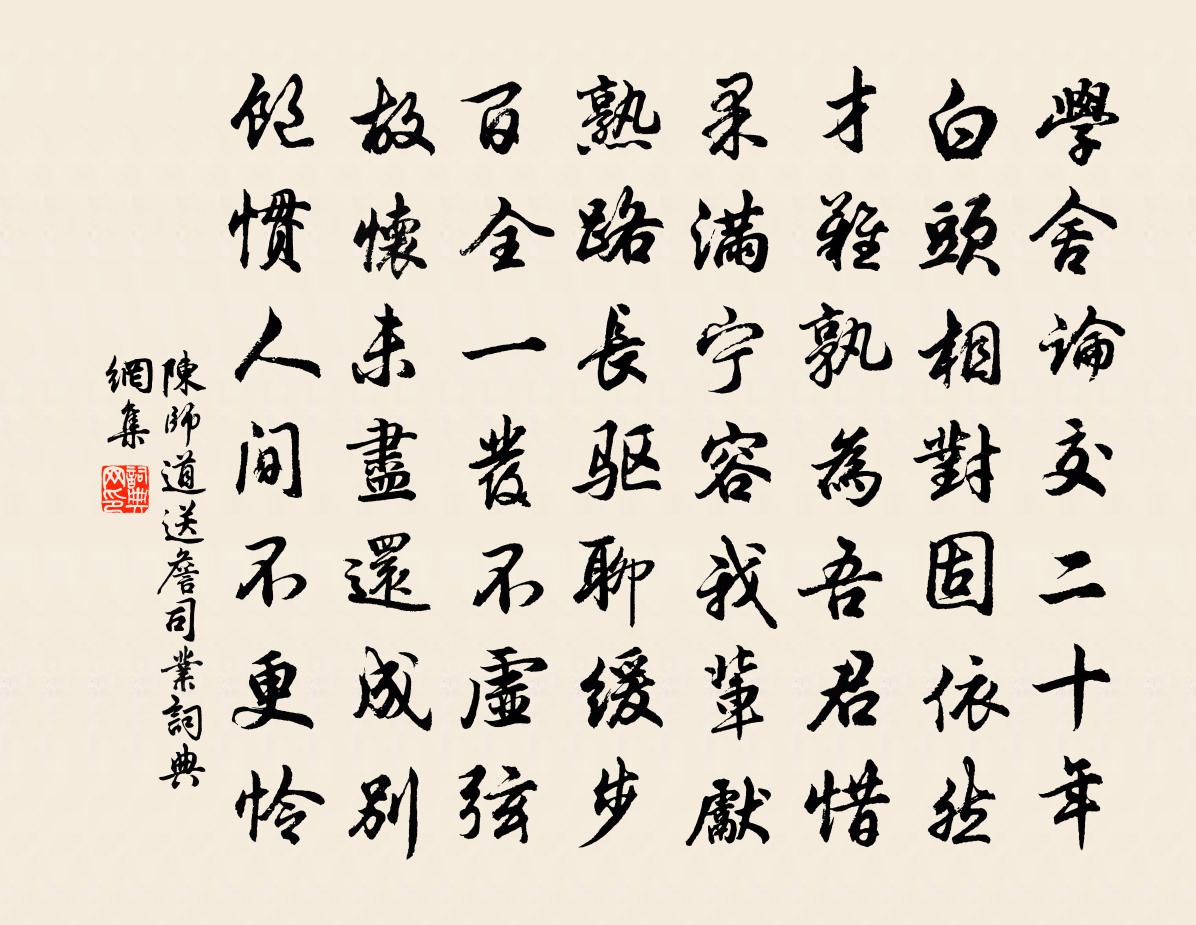 學舍論交二十年
白頭相對固依然
才難孰為吾君惜
累滿宁容我輩獻
熟路長驱聊緩步
百全一發不虛弦
故懷未盡還成別
飽慣人间不更怜
陳師道送詹司業詞典
網集
詞典
网印